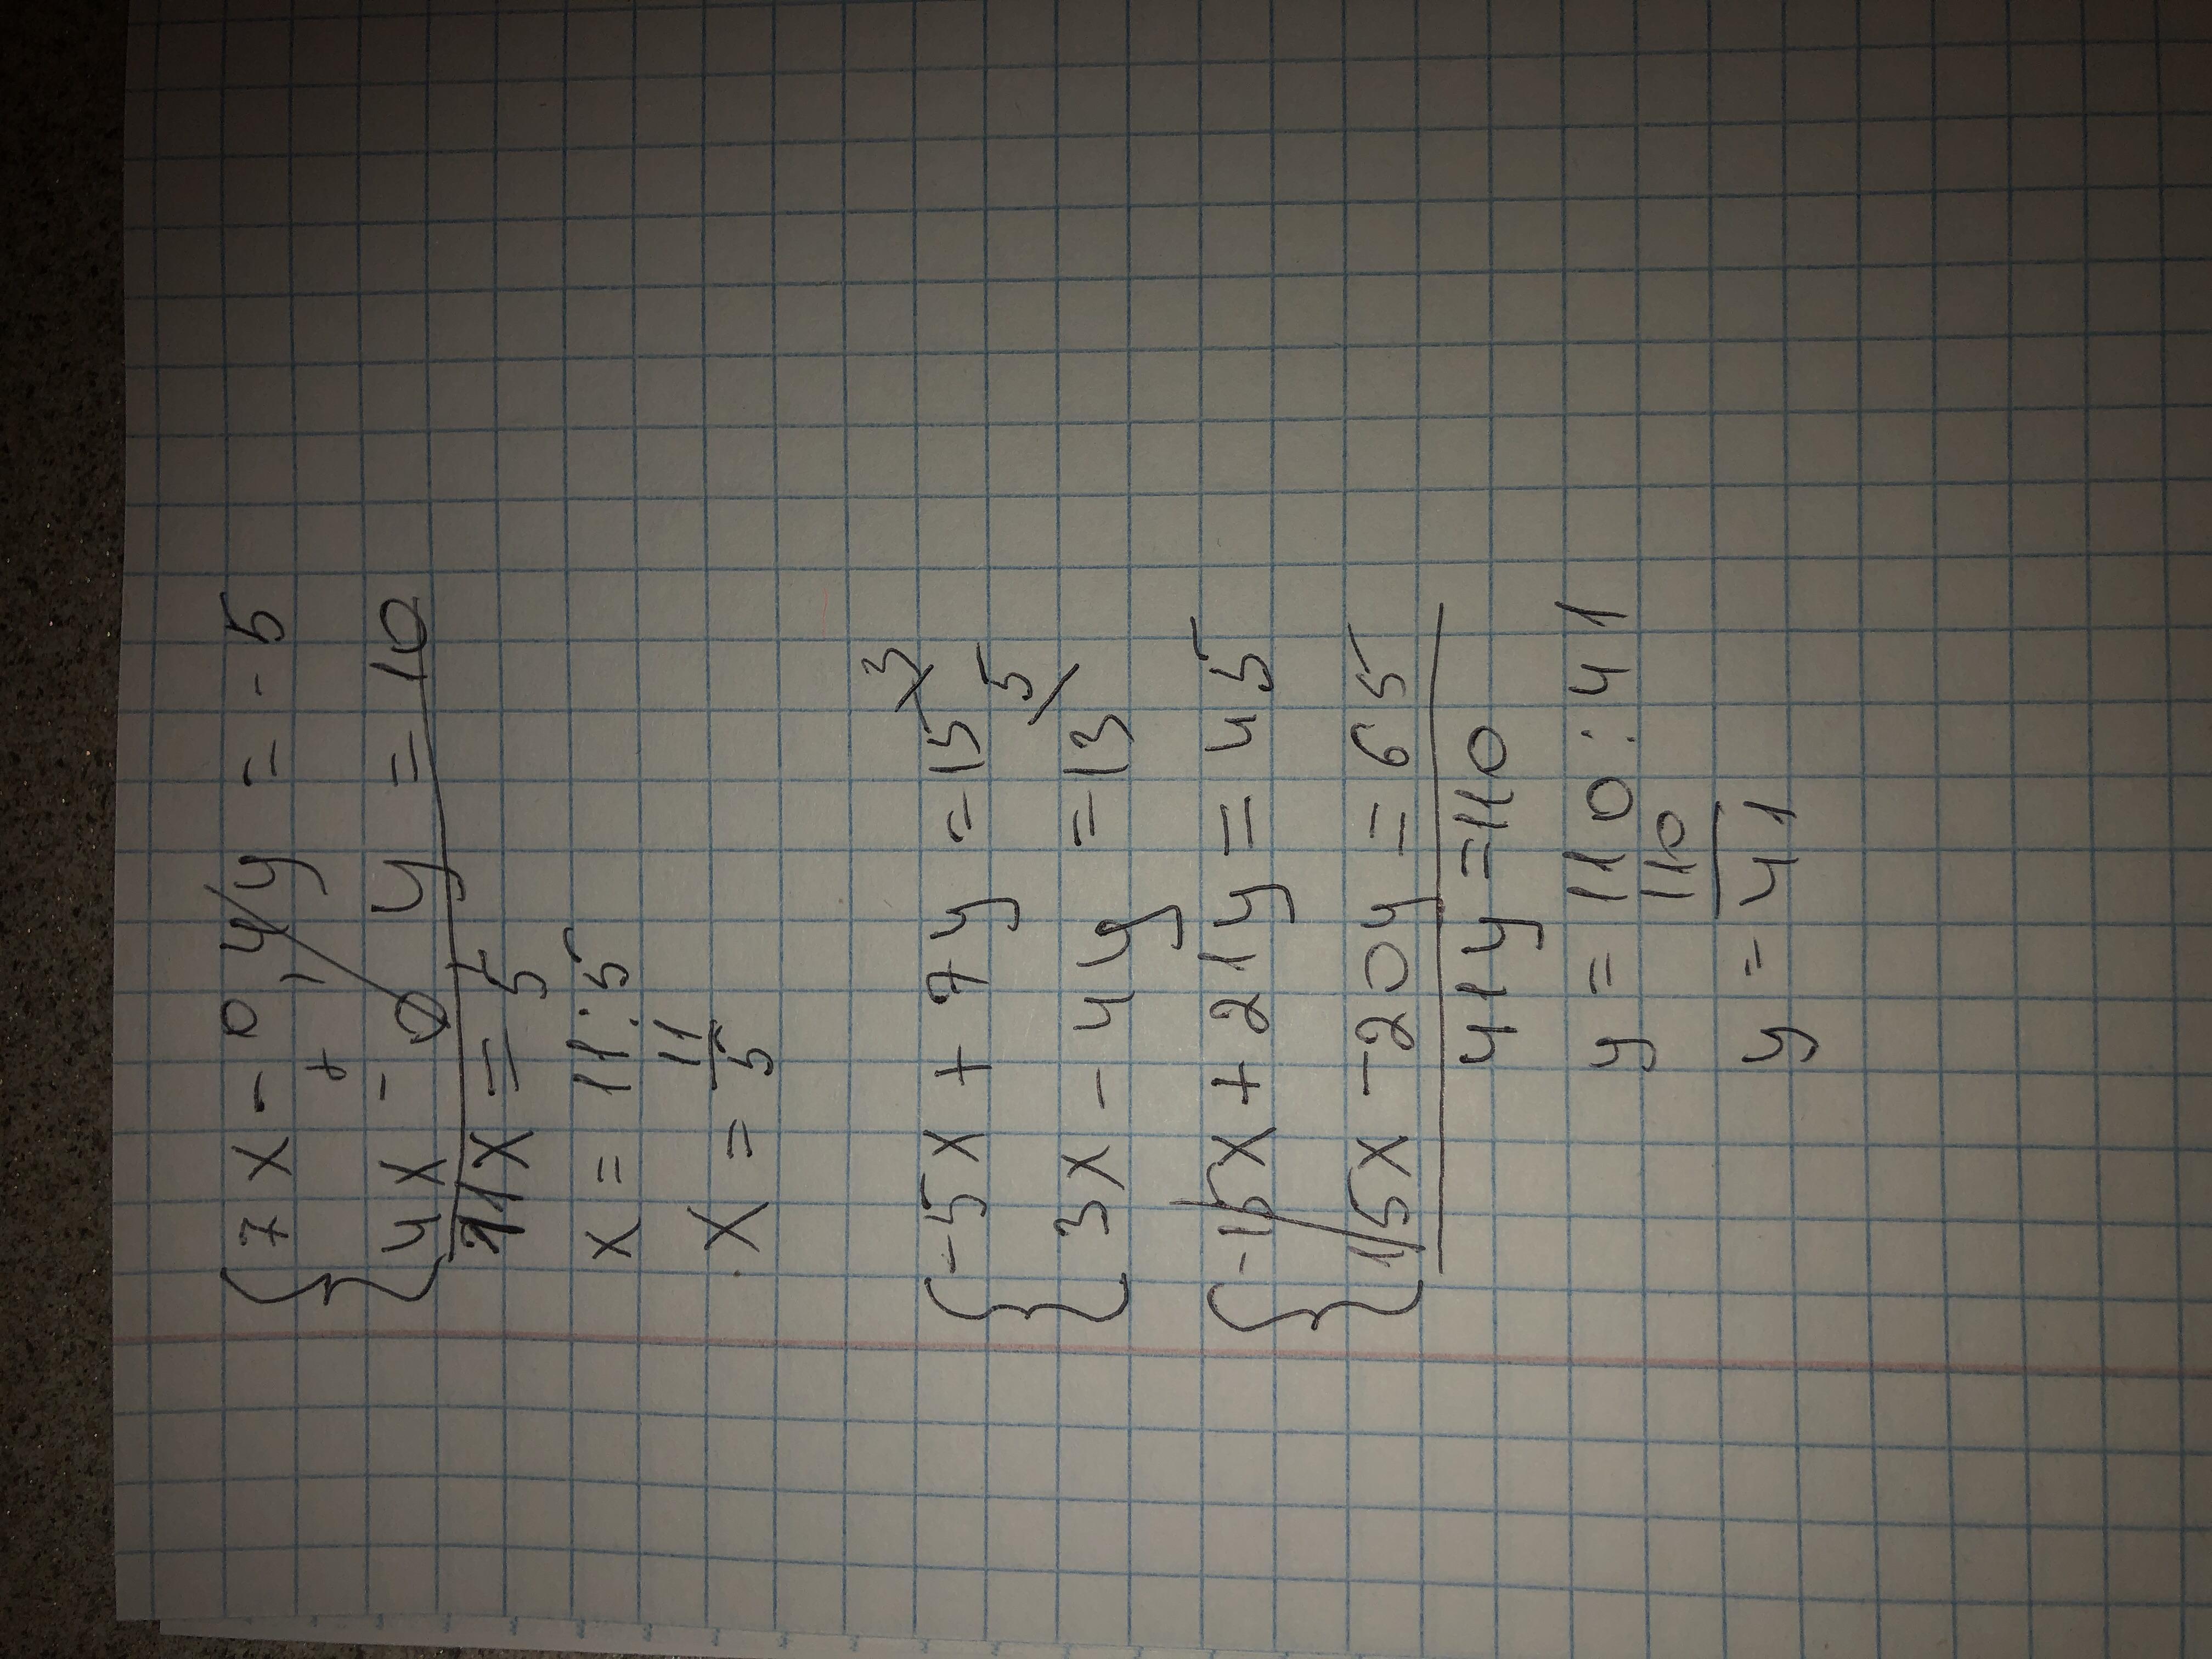 7x - 0,4y = -5
+
4x - 0 y = 10
11x = 5
x = 11:5
x = 11/5
{-5x + 7y = 15 3
{3x - 4y = 13 5
{-15x + 21y = 45
{15x - 20y = 65
41y = 110
y = 110:41
y = 110/41